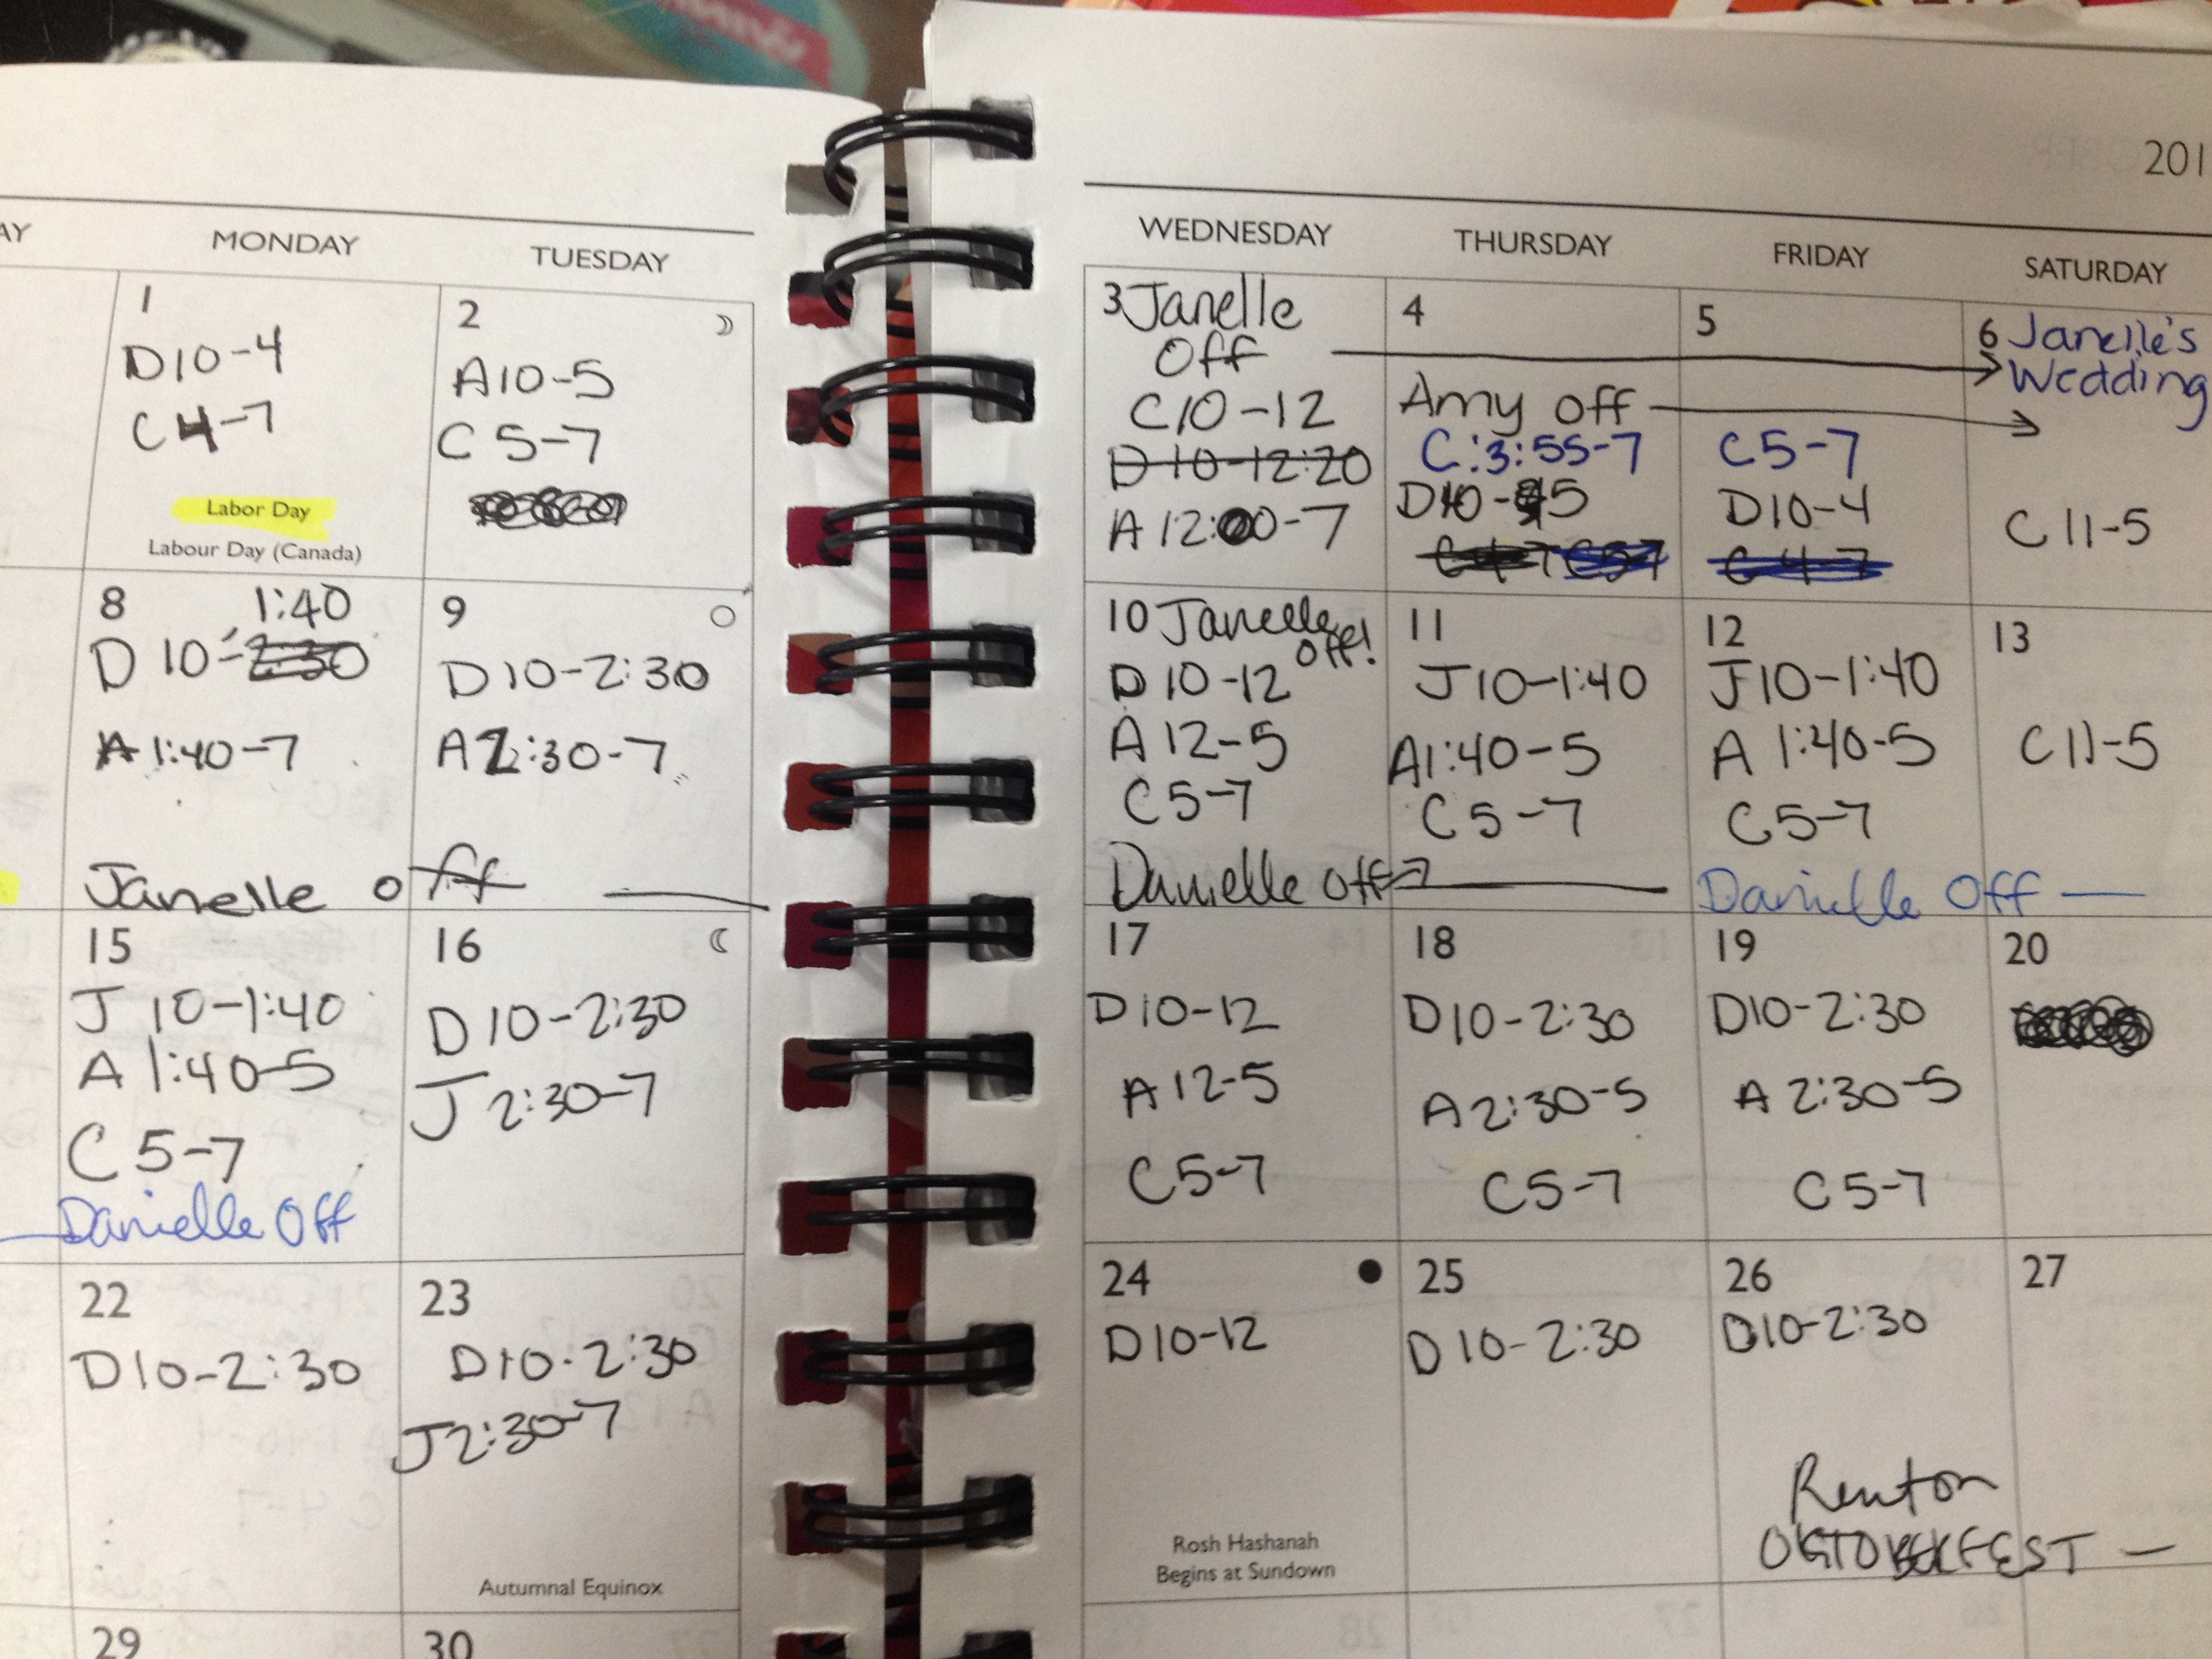 201
MONDAY TUESDAY WEDNESDAY THURSDAY FRIDAY SATURDAY
1
D 10-4
C 4-7
Labor Day
Labour Day (Canada)
2
A 10-5
C 5-7
3 Janelle
Off
C 10-12
D 10-12:20
A 12:00-7
4
Amy off
C: 3:55-7
D 10-5
5
C 5-7
D 10-4
C 4-7
6 Janelle's
Wedding
C 11-5
8 1:40
D 10-2:30
A 1:40-7
Janelle off
9
D 10-2:30
A 2:30-7
10 Janelle
off!
D 10-12
A 12-5
C 5-7
Danielle off
11
J 10-1:40
A 1:40-5
C 5-7
12
J 10-1:40
A 1:40-5
C 5-7
Danielle Off
13
C 11-5
15
J 10-1:40
A 1:40-5
C 5-7
Danielle Off
16
D 10-2:30
J 2:30-7
17
D 10-12
A 12-5
C 5-7
18
D 10-2:30
A 2:30-5
C 5-7
19
D 10-2:30
A 2:30-5
C 5-7
20
22
D 10-2:30
23
D 10-2:30
J 2:30-7
Autumnal Equinox
24
D 10-12
Rosh Hashanah
Begins at Sundown
25
D 10-2:30
26
D 10-2:30
Renton
OKTOBERFEST
27
29
30